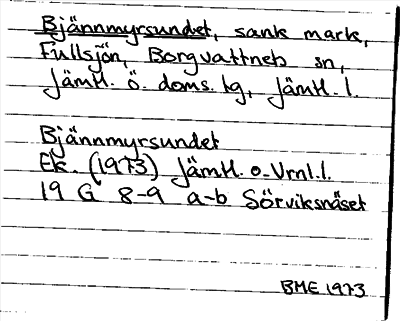 Bjännmyrsundet, sank mark,
Fullsjön, Borgvattneb sn,
Jämtl. ö. doms. tg, Jämtl. l.
Bjännmyrsundet
Ek. (1973) Jämtl. o. Vrnl. l.
19 G 8-9 a-b Sörviksnäset
BME 1973